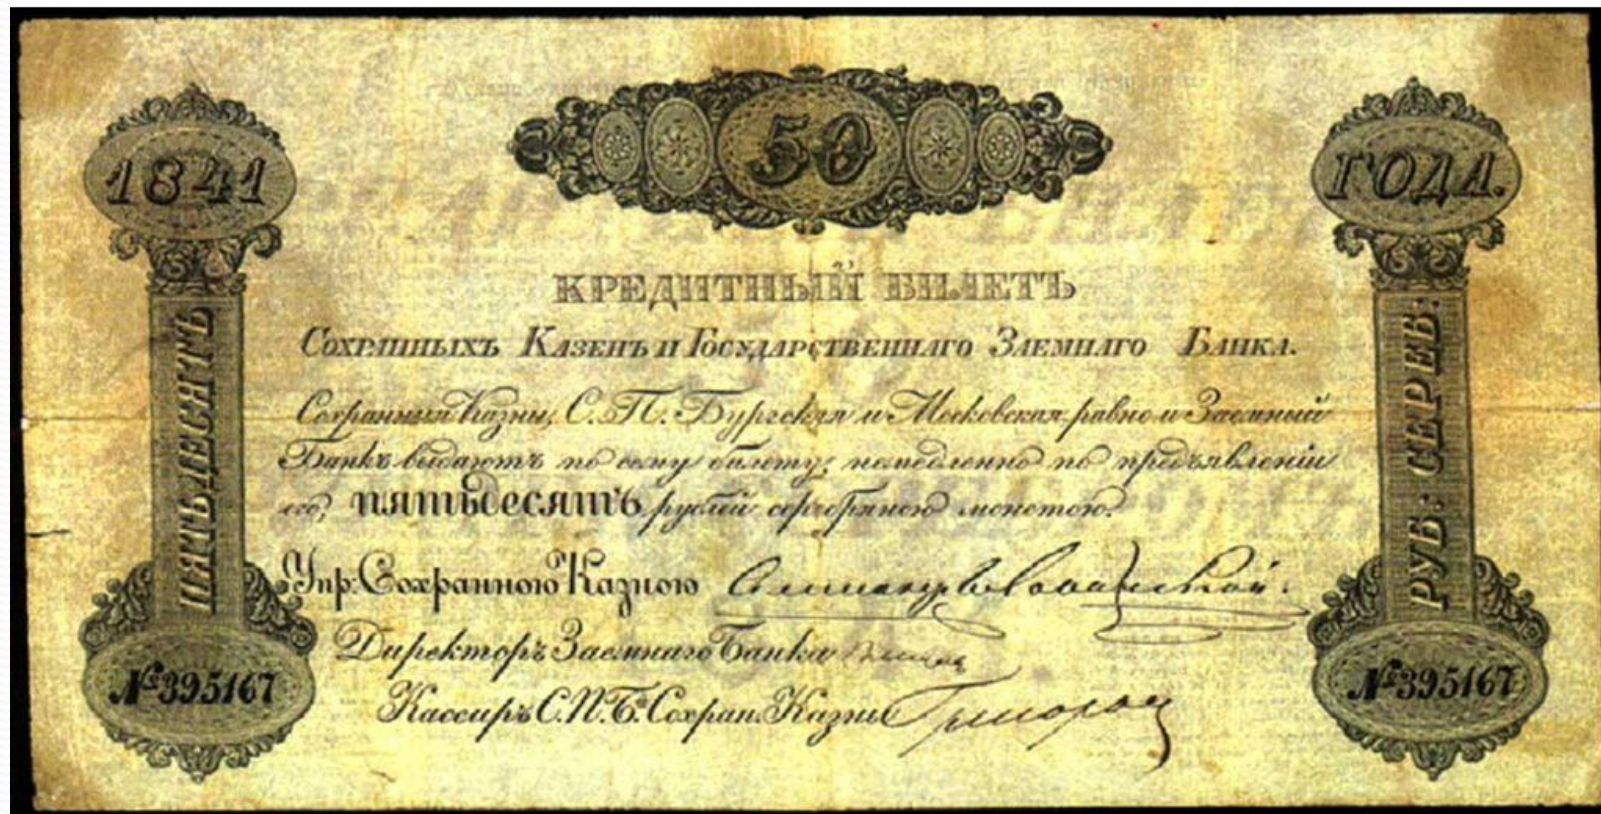 50
1841
ГОДА.
КРЕДИТНЫЙ БИЛЕТЪ
Сохранныхъ Казенъ и Государственнаго Заемнаго Банка.
Сохранныя Казны, С. П. Бургская и Московская, равно и Заемный
Банкъ выдаютъ по сему билету, немедленно по предъявленіи
его, пятьдесятъ рублей серебряною монетою.
Упр. Сохранною Казною
Директоръ Заемнаго Банка
Кассиръ С. П. Б. Сохран. Казны
ПЯТЬДЕСЯТЪ
РУБ: СЕРЕБ:
№395167
№395167